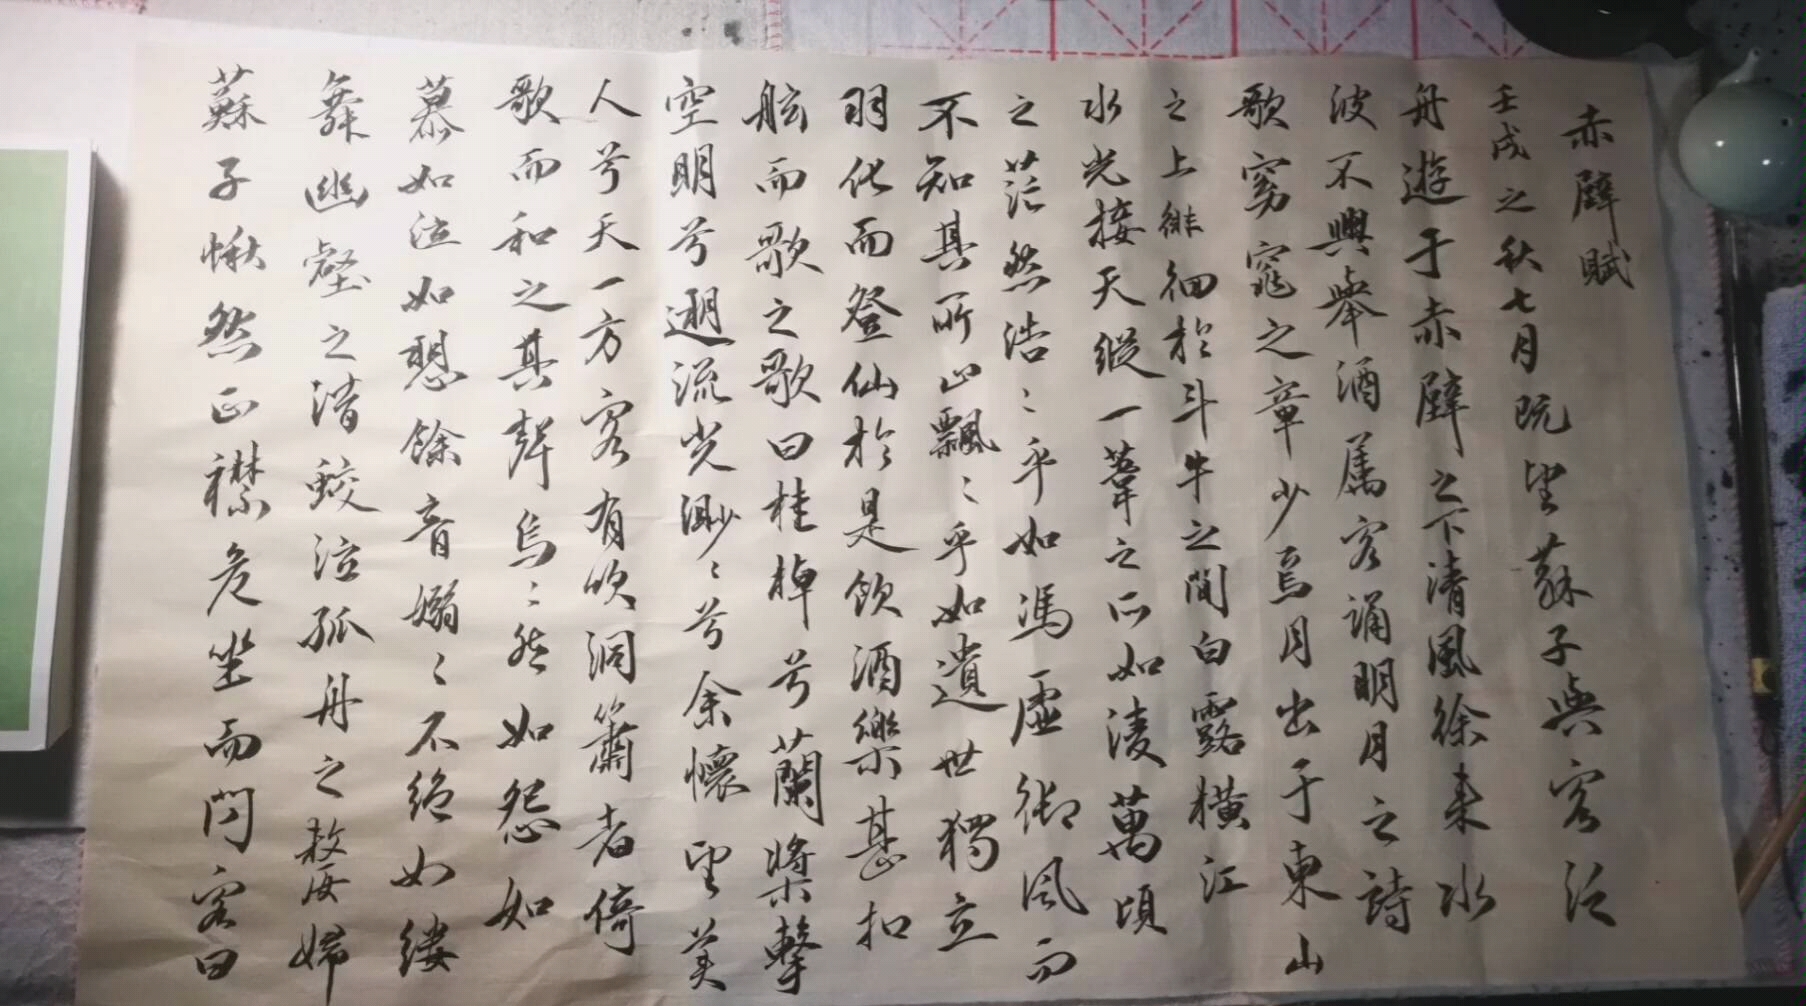 赤壁賦
壬戌之秋七月既望蘇子與客泛
舟遊于赤壁之下清風徐来水
波不興舉酒属客誦明月之詩
歌窈窕之章少焉月出于東山
之上徘徊於斗牛之間白露横江
水光接天縱一葦之所如淩萬頃
之茫然浩〻乎如馮虛御風而
不知其所止飄〻乎如遺世獨立
羽化而登仙於是飲酒樂甚扣
舷而歌之歌曰桂棹兮蘭槳擊
空明兮遡流光渺〻兮余懷望美
人兮天一方客有吹洞簫者倚
歌而和之其聲烏〻然如怨如
慕如泣如愬餘音嫋〻不絕如縷
舞幽壑之潛蛟泣孤舟之嫠婦
蘇子愀然正襟危坐而問客曰